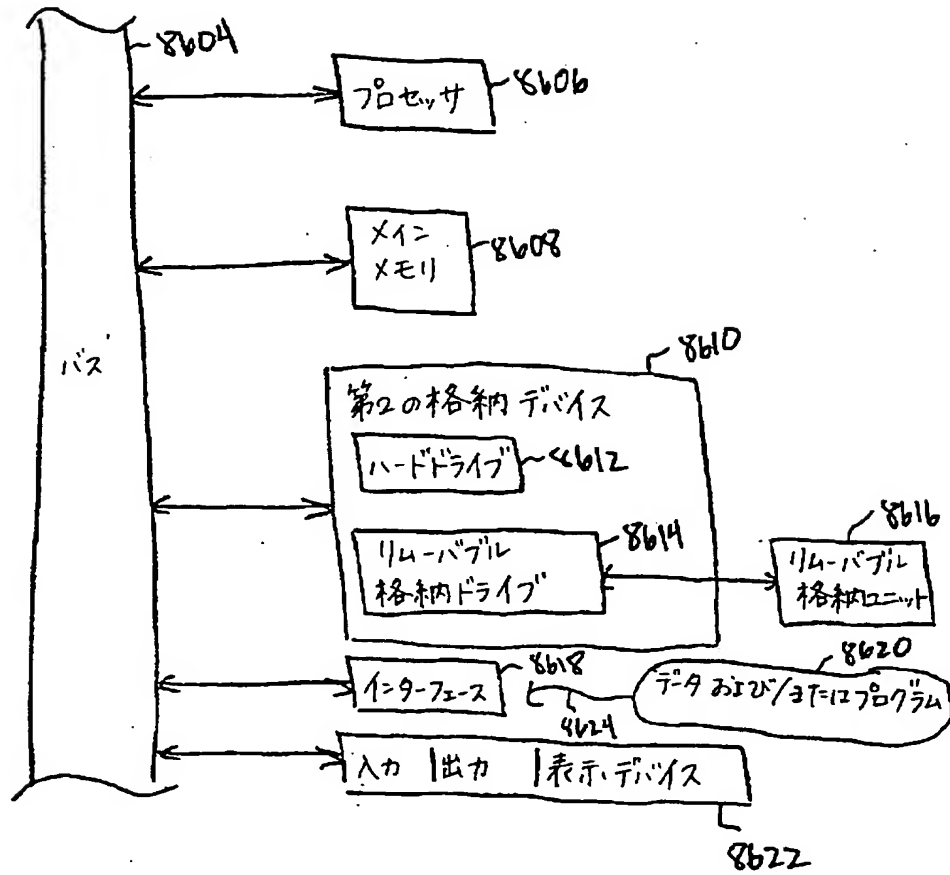 8604
プロセッサ
8606
メイン
メモリ
8608
バス
8610
第2の格納デバイス
ハードドライブ
8612
リムーバブル
格納ドライブ
8614
8616
リムーバブル
格納ユニット
インターフェース
8618
8620
データおよび/またはプログラム
8624
入力 | 出力 | 表示デバイス
8622